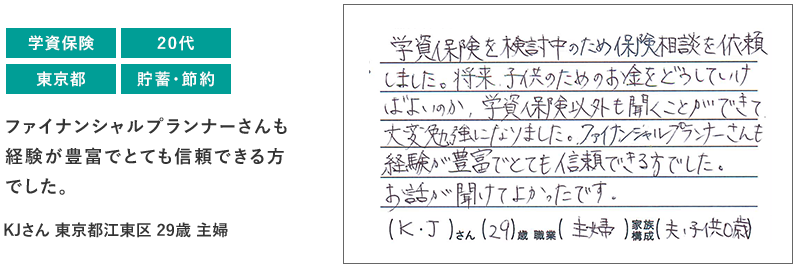 学資保険
20代
東京都
貯蓄・節約
ファイナンシャルプランナーさんも
経験が豊富でとても信頼できる方
でした。
KJさん 東京都江東区 29歳 主婦
学資保険を検討中のため保険相談を依頼
しました。将来、子供のためのお金をどうしていけ
ばよいのか、学資保険以外も聞くことができて
大変勉強になりました。ファイナンシャルプランナーさんも
経験が豊富でとても信頼できる方でした。
お話が聞けてよかったです。
(K・J)さん(29)歳 職業(主婦)家族構成(夫・子供0歳)